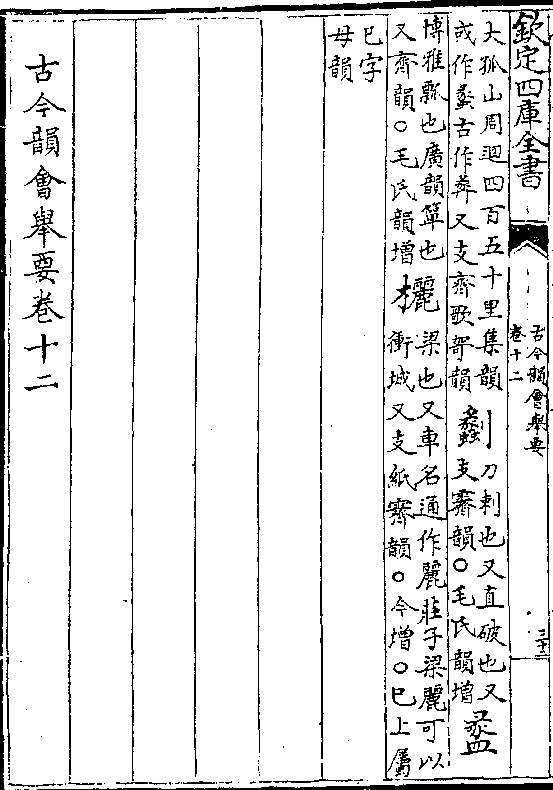 欽定四庫全書
古今韻會舉要
卷十二
大孤山周迴四百五十里集韻
或作蠡古作又支齊歌哿韻
劙
刀刺也又直破也又
支霽韻○毛氏韻增
盠
博雅瓢也廣韻簞也
又齊韻○毛氏韻增
欐
梁也又車名通作麗莊子梁麗可以
衝城又支紙霽韻○今增○已上屬
已字
母韻
古今韻會舉要卷十二